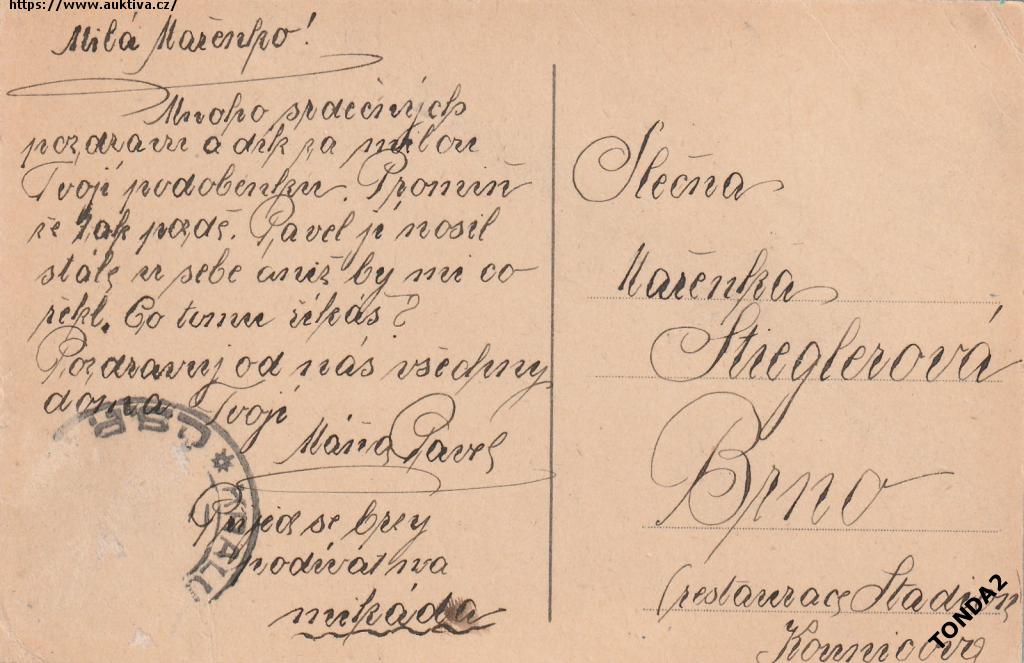 https://www.auktiva.cz/
Milá Mařenko!
Mnoho srdečných
pozdravu a dík za milou
Tvojí podobenku. Promiň
že tak pozdě. Pavel ji nosil
stále u sebe aniž by mi co
řekl. Co tomu říkáš?
Pozdravuj od nás všechny
doma Tvoji
Máňa Pavel
se brzy
podívat na
mikáda
Slečna
Mařenka
Stieglerová
Brno
(restaurace Stadion
Kounicova
TONDA2